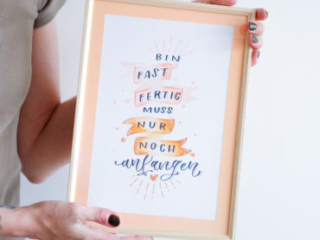 BIN
FAST
FERTIG
MUSS
NUR
NOCH
anfangen